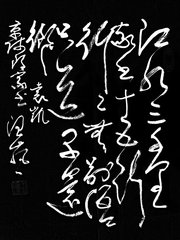 江水三千里
家書十五行
行々無別語
只道早還
鄉 袁凱
京師得家書